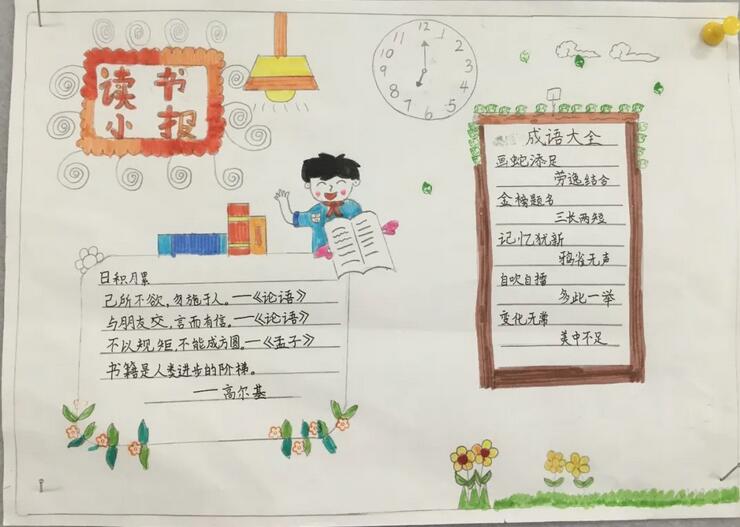 读书
小报
12
1
2
3
4
5
6
7
8
9
10
11
日积月累
己所不欲,勿施于人。——《论语》
与朋友交,言而有信。——《论语》
不以规矩,不能成方圆。——《孟子》
书籍是人类进步的阶梯。
——高尔基
成语大全
画蛇添足
劳逸结合
金榜题名
三长两短
记忆犹新
鸦雀无声
自吹自擂
多此一举
变化无常
美中不足